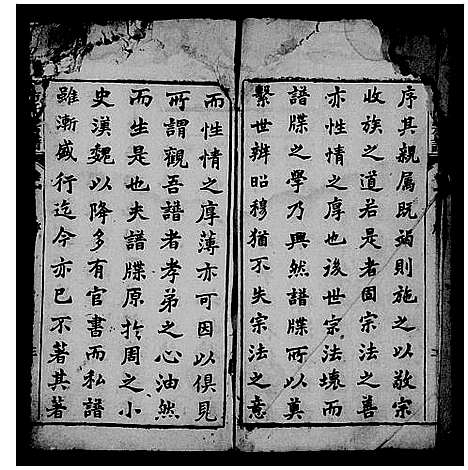 序其親属既竭則施之以敬宗
收族之道若是者固宗法之善
亦性情之厚也後世宗法壞而
譜牒之學乃興然譜牒所以奠
繫世辨昭穆猶不失宗法之意
而性情之厚薄亦可因以俱見
所謂觀吾譜者孝弟之心油然
而生是也夫譜牒原於周之小
史漢魏以降多有官書而私譜
雖漸盛行迄今亦已不著其著